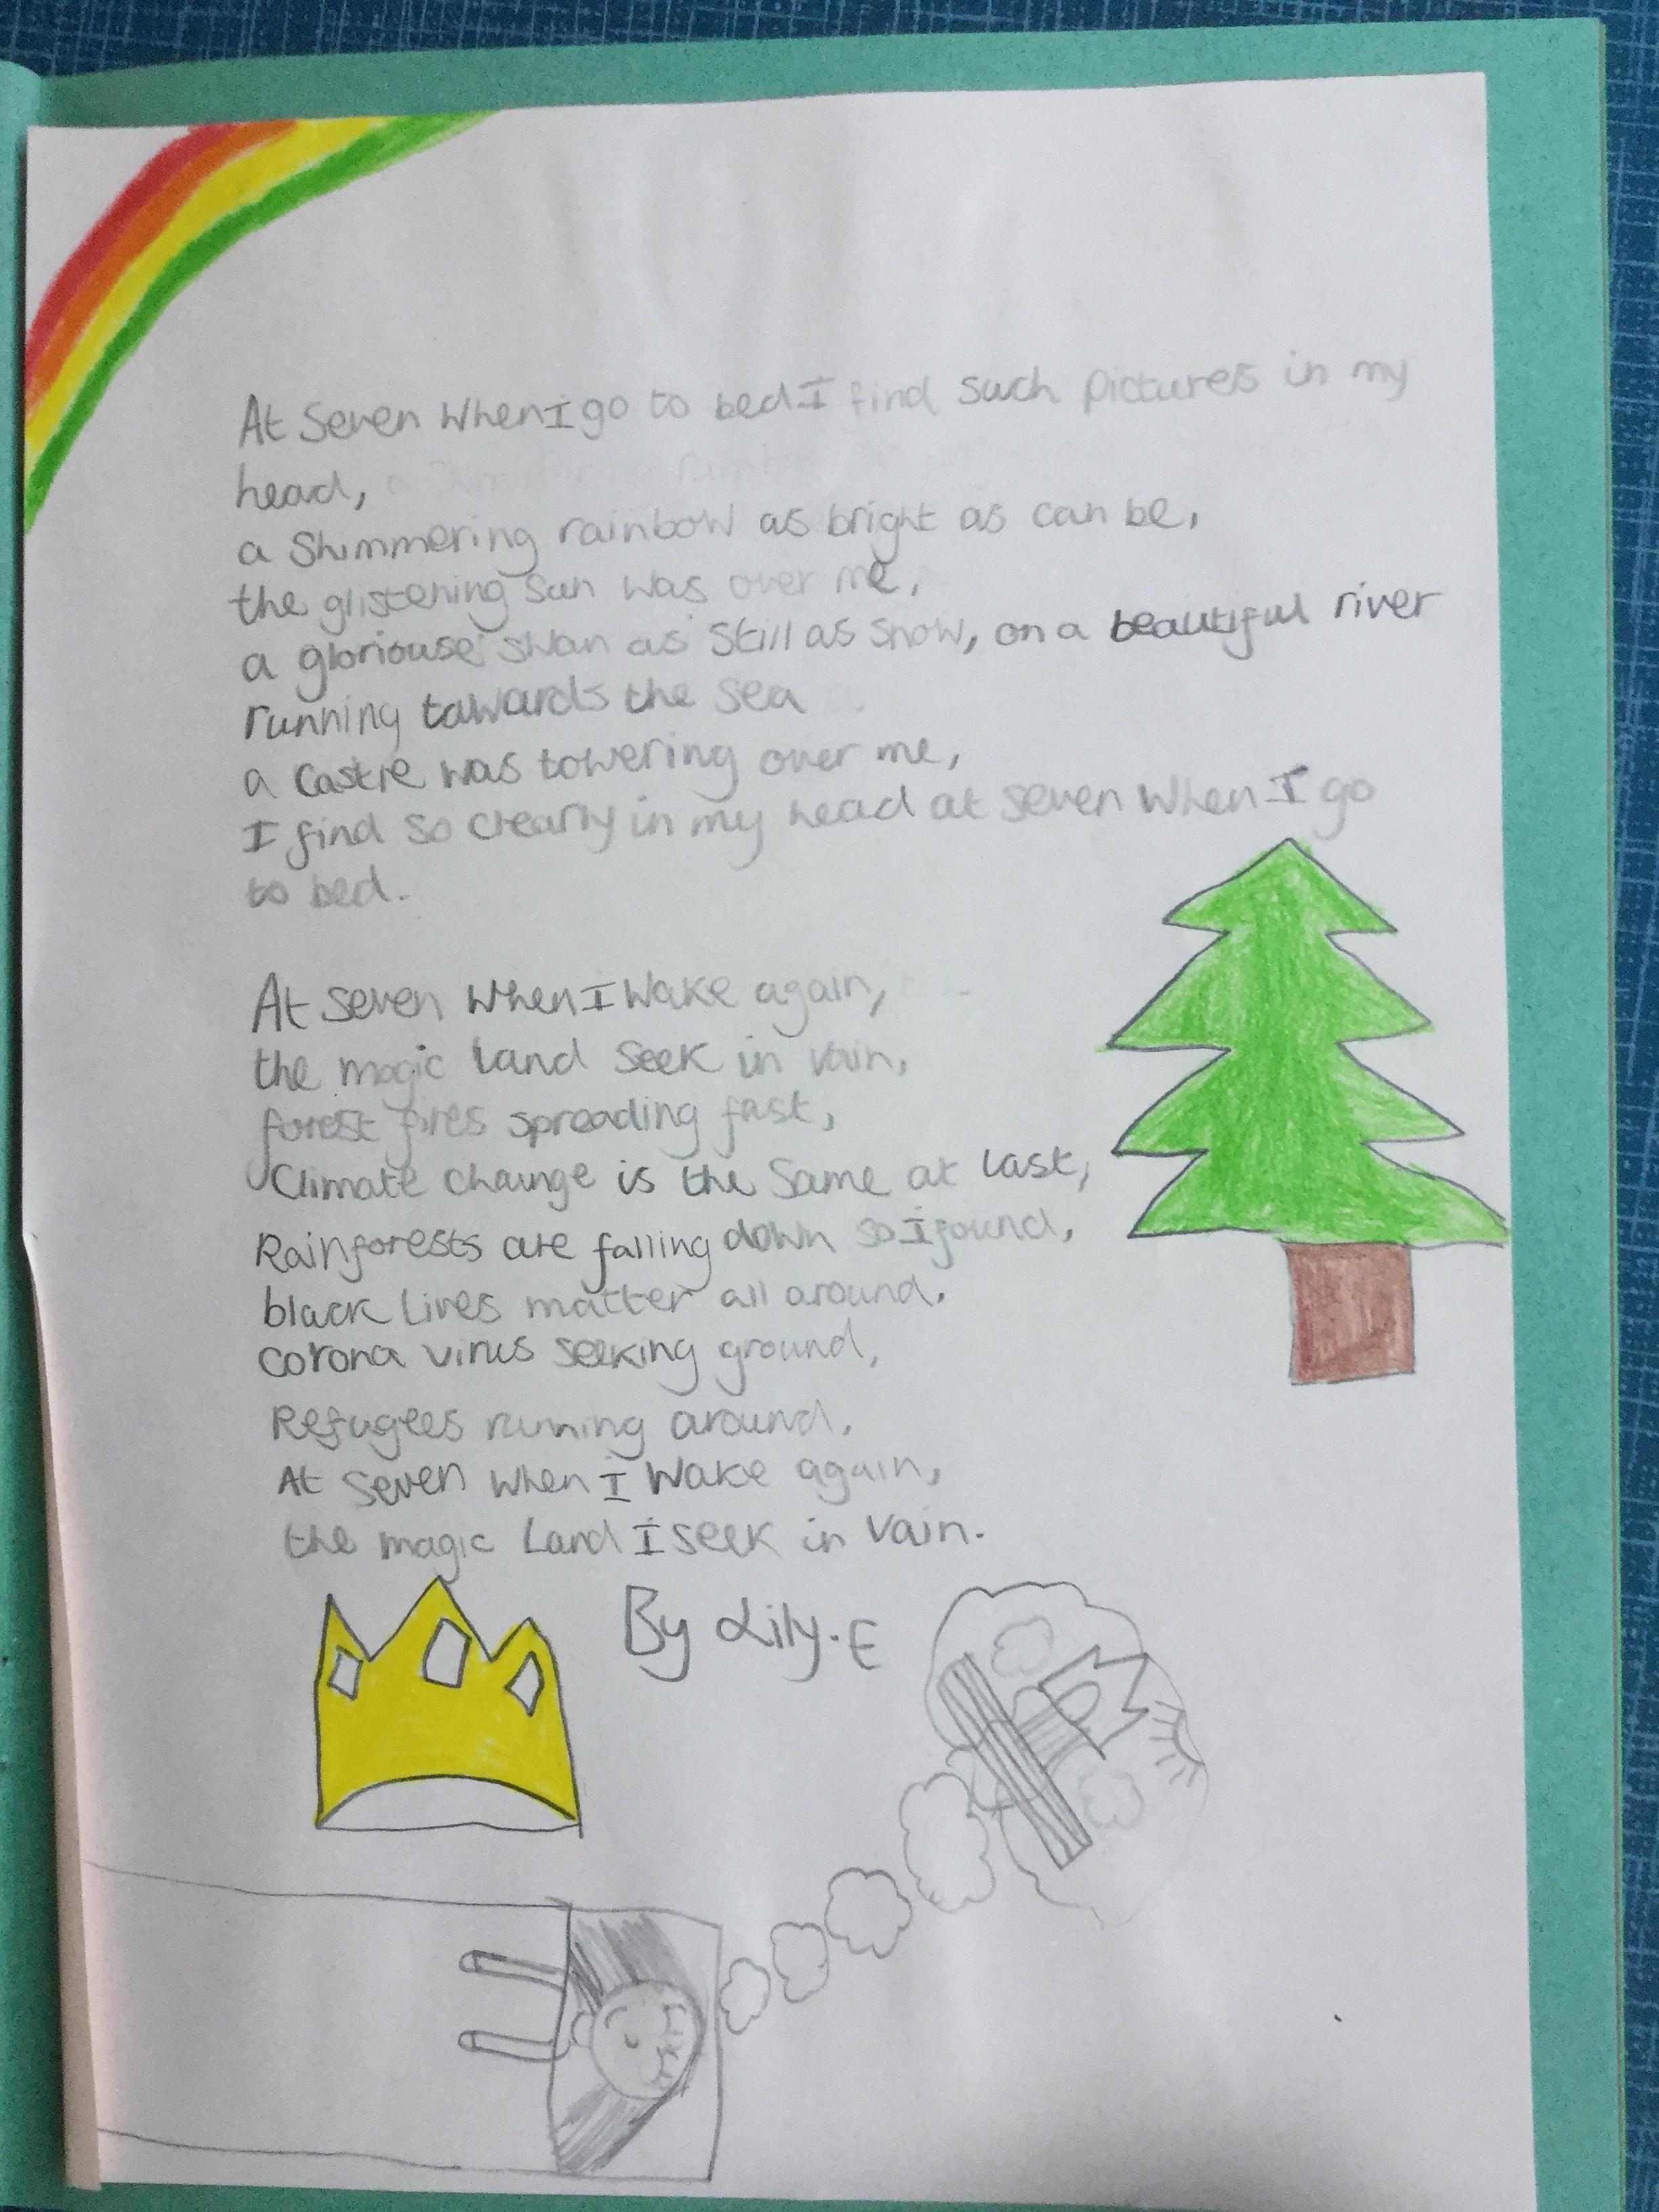 At Seven when I go to bed I find such pictures in my
head,
a Shimmering rainbow as bright as can be,
the glistening sun was over me,
a gloriouse swan as still as snow, on a beautiful river
running tawards the sea
a Castle was towering over me,
I find so clearly in my head at seven when I go
to bed.
At seven when I wake again,
the magic land seek in vain,
forest fires spreading fast,
Climate change is the same at last,
Rainforests are falling down so I found,
black lives matter all around.
corona virus seeking ground,
Refugees running around.
At seven when I wake again,
the magic Land I seek in vain.
By Lily.E